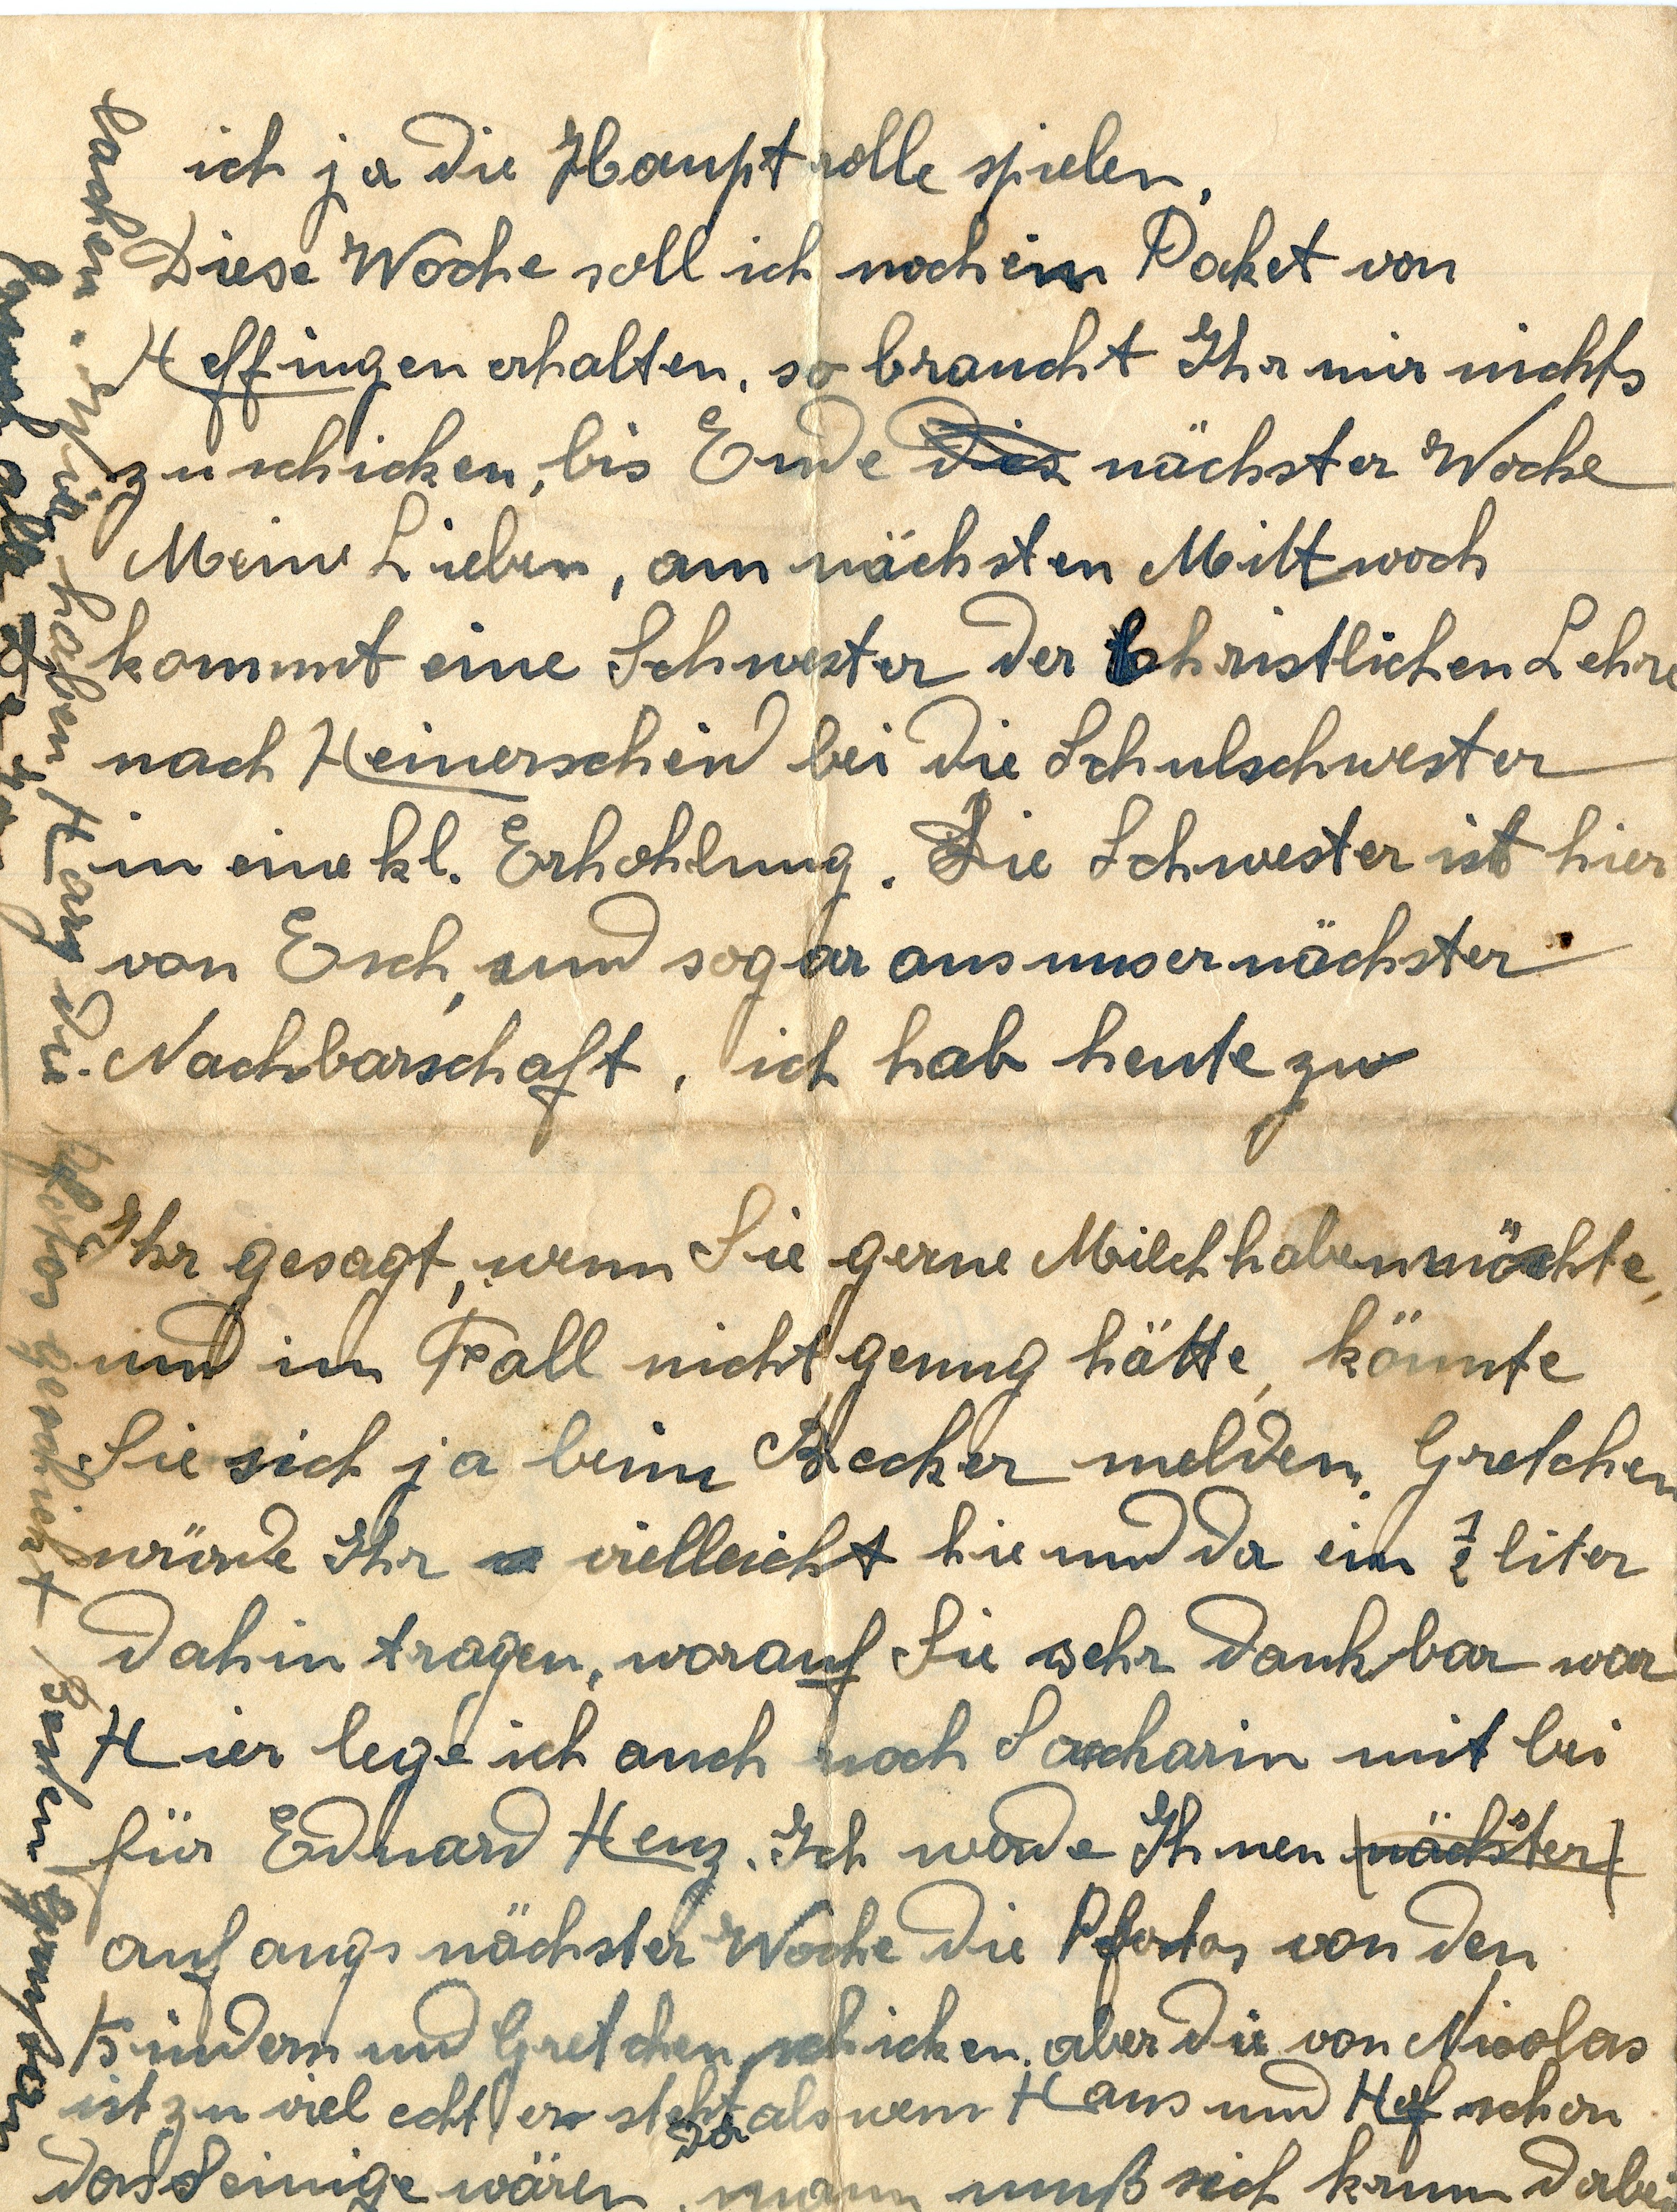 ich ja die Hauptrolle spielen.
Diese Woche soll ich noch ein Paket von
Heffingen erhalten, so braucht Ihr mir nichts
zu schicken, bis Ende dies nächster Woche
Meine Lieben, am nächsten Mittwoch
kommt eine Schwester der Christlichen Lehre
nach Heinerscheid bei die Schulschwester
in eine kl. Erhohlung. Die Schwester ist hier
von Esch, und sogar aus unser nächster
Nachbarschaft, ich hab heute zu
Ihr gesagt, wenn Sie gerne Milch haben möchte,
und im Fall nicht genug hätte, könnte
Sie sich ja beim Becker melden. Gretchen
würde Ihr vielleicht hie und da ein ½ liter
dahin tragen, worauf Sie sehr dankbar war
Hier lege ich auch noch Saccharin mit bei
für Eduard Henz. Ich werde Ihnen (nächster)
anfangs nächster Woche die Pfotos von den
Kindern und Gretchen schicken, aber die von Nicolas
ist zu viel echt er steht da als wenn Haus und Hof schon
das Seinige wären, mann muß sich krum dabei
lachen. Wir haben Hary die Pfotos geschickt